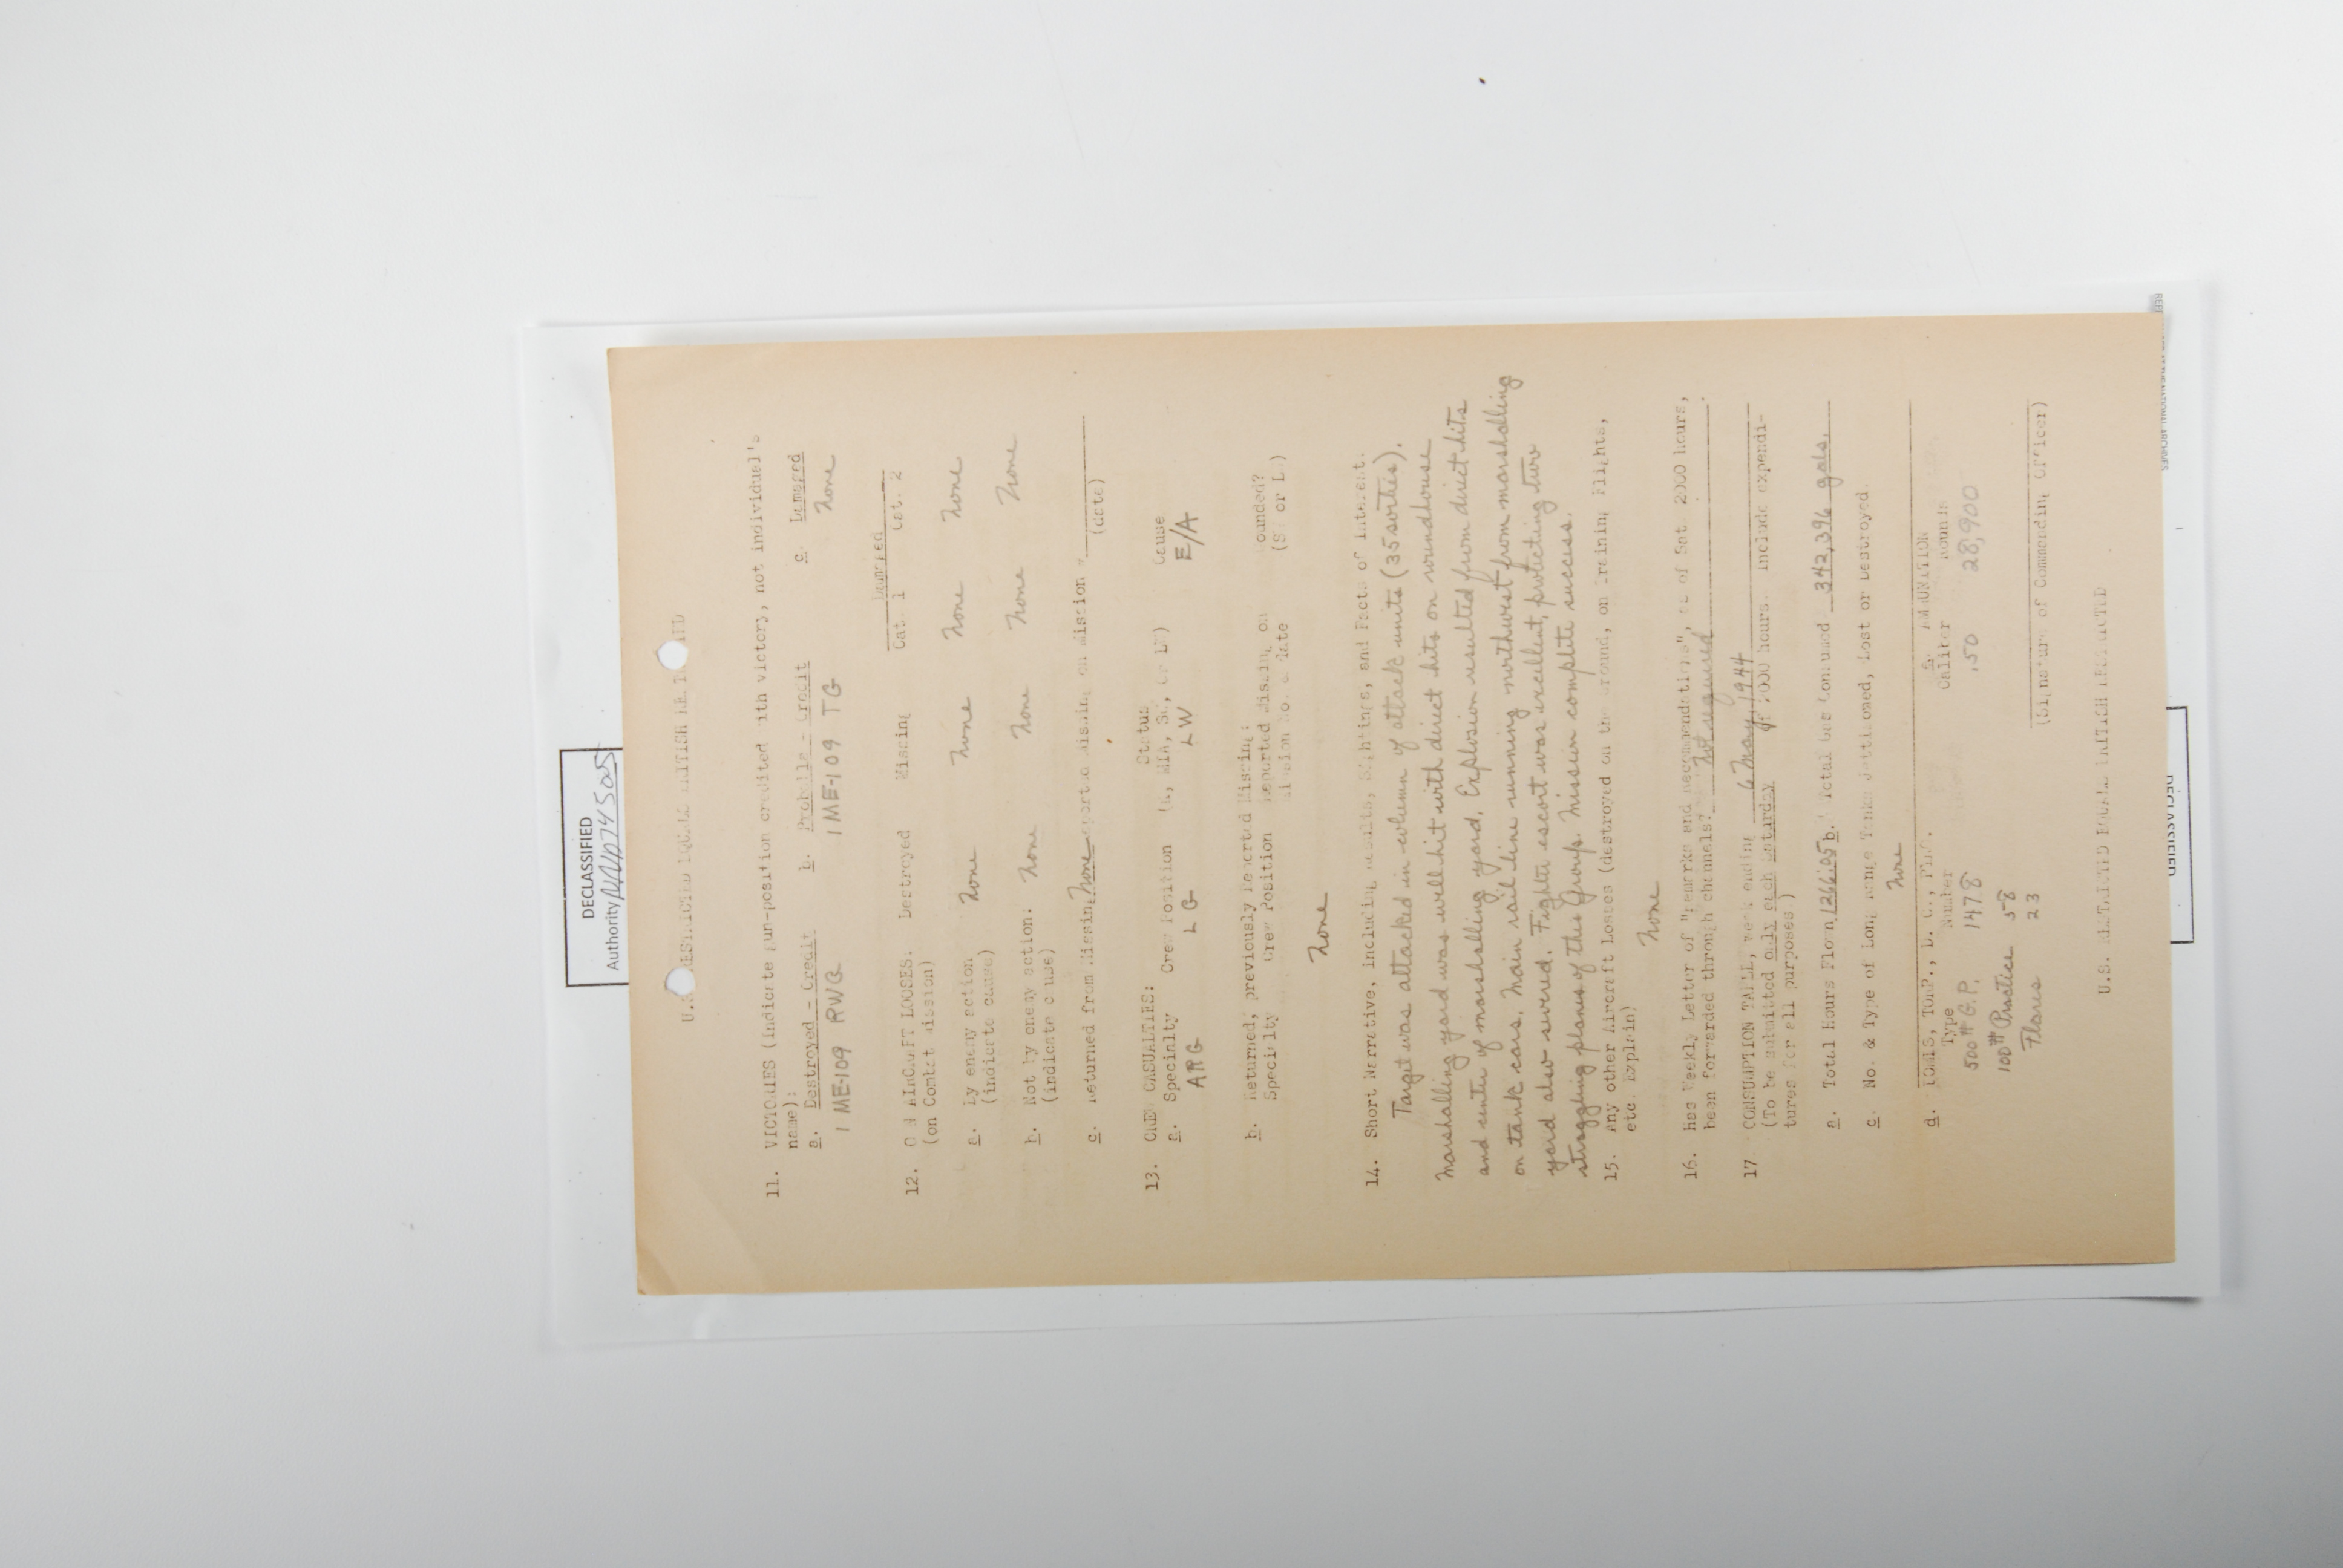 DECLASSIFIED
Authority NND745005
U.S. RESTRICTED EQUALS BRITISH RESTRICTED
11. VICTORIES (Indicate gun-position credited with victory, not individual's
name):
a. Destroyed - Credit b. Probable - Credit c. Damaged
1 ME-109 RWG 1 ME-109 TG None
Damaged
12. OWN AIRCRAFT LOSSES. Destroyed Missing Cat. 1 Cat. 2
(on Combat Mission)
a. By enemy action None None None None
(indicate cause)
b. Not by enemy action: None None None None
(indicate cause)
c. Returned from Missing None reported missing on mission
(date)
13. CREW CASUALTIES: Status
a. Specialty Crew Position MIA, Cause
ARG LG LW E/A
b. Returned, previously Reported Missing: Wounded?
Specialty Crew Position Reported Missing on
Mission No. & date
None
14. Short Narrative, including results, Sightings, and Facts of Interest.
Target was attacked in column of attack units (35 sorties).
Marshalling yard was well hit with direct hits on roundhouse
and center of marshalling yard. Explosion resulted from direct hits
on tank cars. Main rail line running northwest from marshalling
yard also severed. Fighter escort was excellent, protecting two
straggling planes of this Group. Mission complete success.
15. Any other Aircraft Losses (destroyed on the ground, on training flights,
etc. Explain)
None
16. Has Weekly Letter of "Remarks and Recommendations", as of Sat 2000 hours,
been forwarded through channels? Not required.
17. CONSUMPTION TALLY, week ending 6 May, 1944
(To be submitted only each Saturday @ 2000 hours. Include expendi-
tures for all purposes.)
a. Total Hours Flown 1266:05 b. Total Gas Consumed 342,396 gals.
c. No. & Type of Long Range Tanks Jettisoned, Lost or Destroyed.
None
d. BOMBS, TORP., D. C., ETC. e. AMMUNITION
Type Number Caliber Rounds
500# G.P. 1478 .50 28,900
100# Practice 58
Flares 23
(Signature of Commanding Officer)
U.S. RESTRICTED EQUALS BRITISH RESTRICTED
DECLASSIFIED